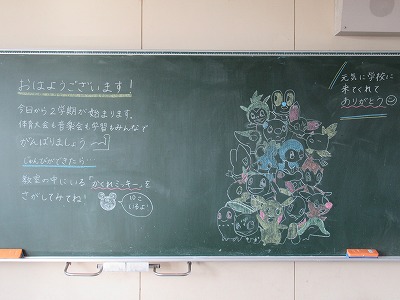 おはようございます!
今日から2学期が始まります。
体育大会も音楽会も学習もみんなで
がんばりましょう
じゅんびができたら…
教室の中にいる「かくれミッキー」を
さがしてみてね!
10こ
いるよ!
元気に学校に
来てくれて
ありがとう